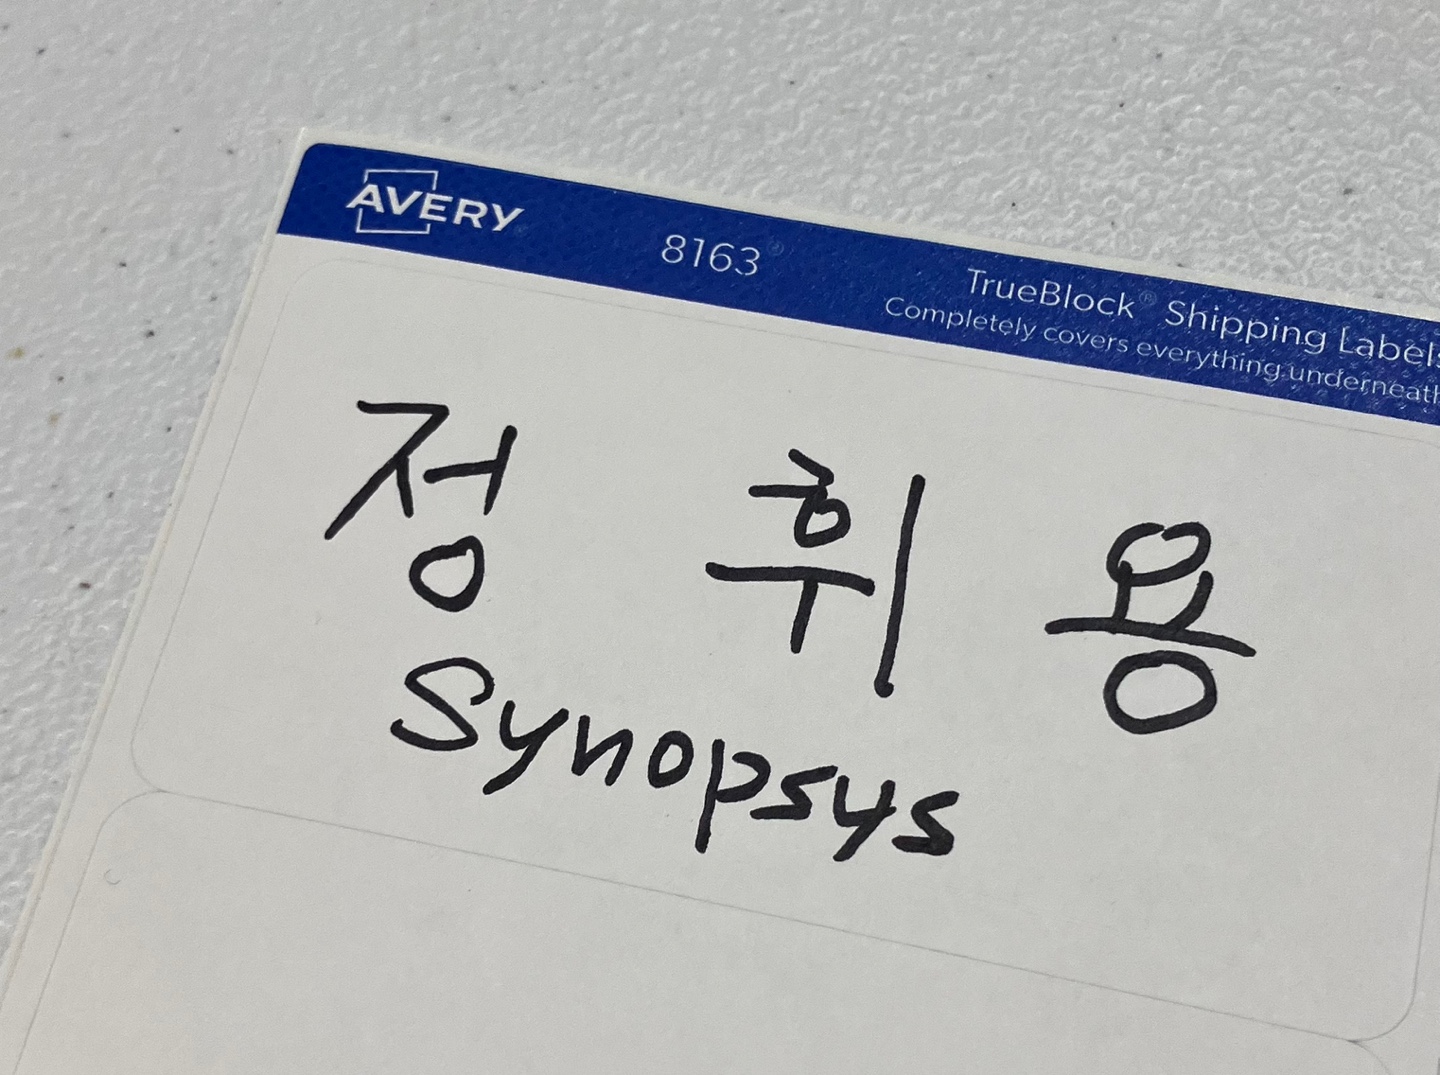 AVERY 8163® TrueBlock® Shipping Labels
Completely covers everything underneath
정 휘 용
Synopsys